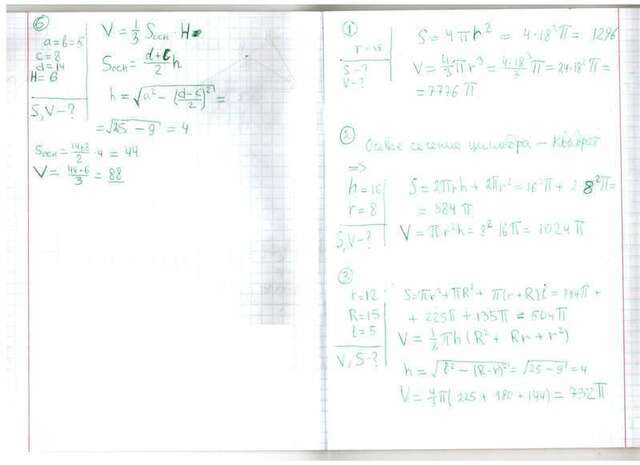 6
a=b=5
c=8
d=14
H=6
S,V-?
V = 1/3 Sосн · H
Sосн = (d+c)/2 h
h = √(a² - ((d-c)/2)²) =
= √(25 - 9) = 4
Sосн = (14+8)/2 · 4 = 44
V = (44·6)/3 = 88
1
r=18
S-?
V-?
S = 4πr² = 4·18²π = 1296
V = 4/3 πr³ = (4·18³)/3 π = 24·18²π =
= 7776π
2
Осевое сечение цилиндра – квадрат
=>
h=16
r=8
S,V-?
S = 2πrh + 2πr² = 16²π + 2·8²π =
= 384π
V = πr²h = 8²·16π = 1024π
3
r=12
R=15
l=5
V,S-?
S = πr² + πR² + π(r+R)l = 144π +
+ 225π + 135π = 504π
V = 1/3 πh(R² + Rr + r²)
h = √(l² - (R-r)²) = √(25-9) = 4
V = 4/3 π(225 + 180 + 144) = 732π